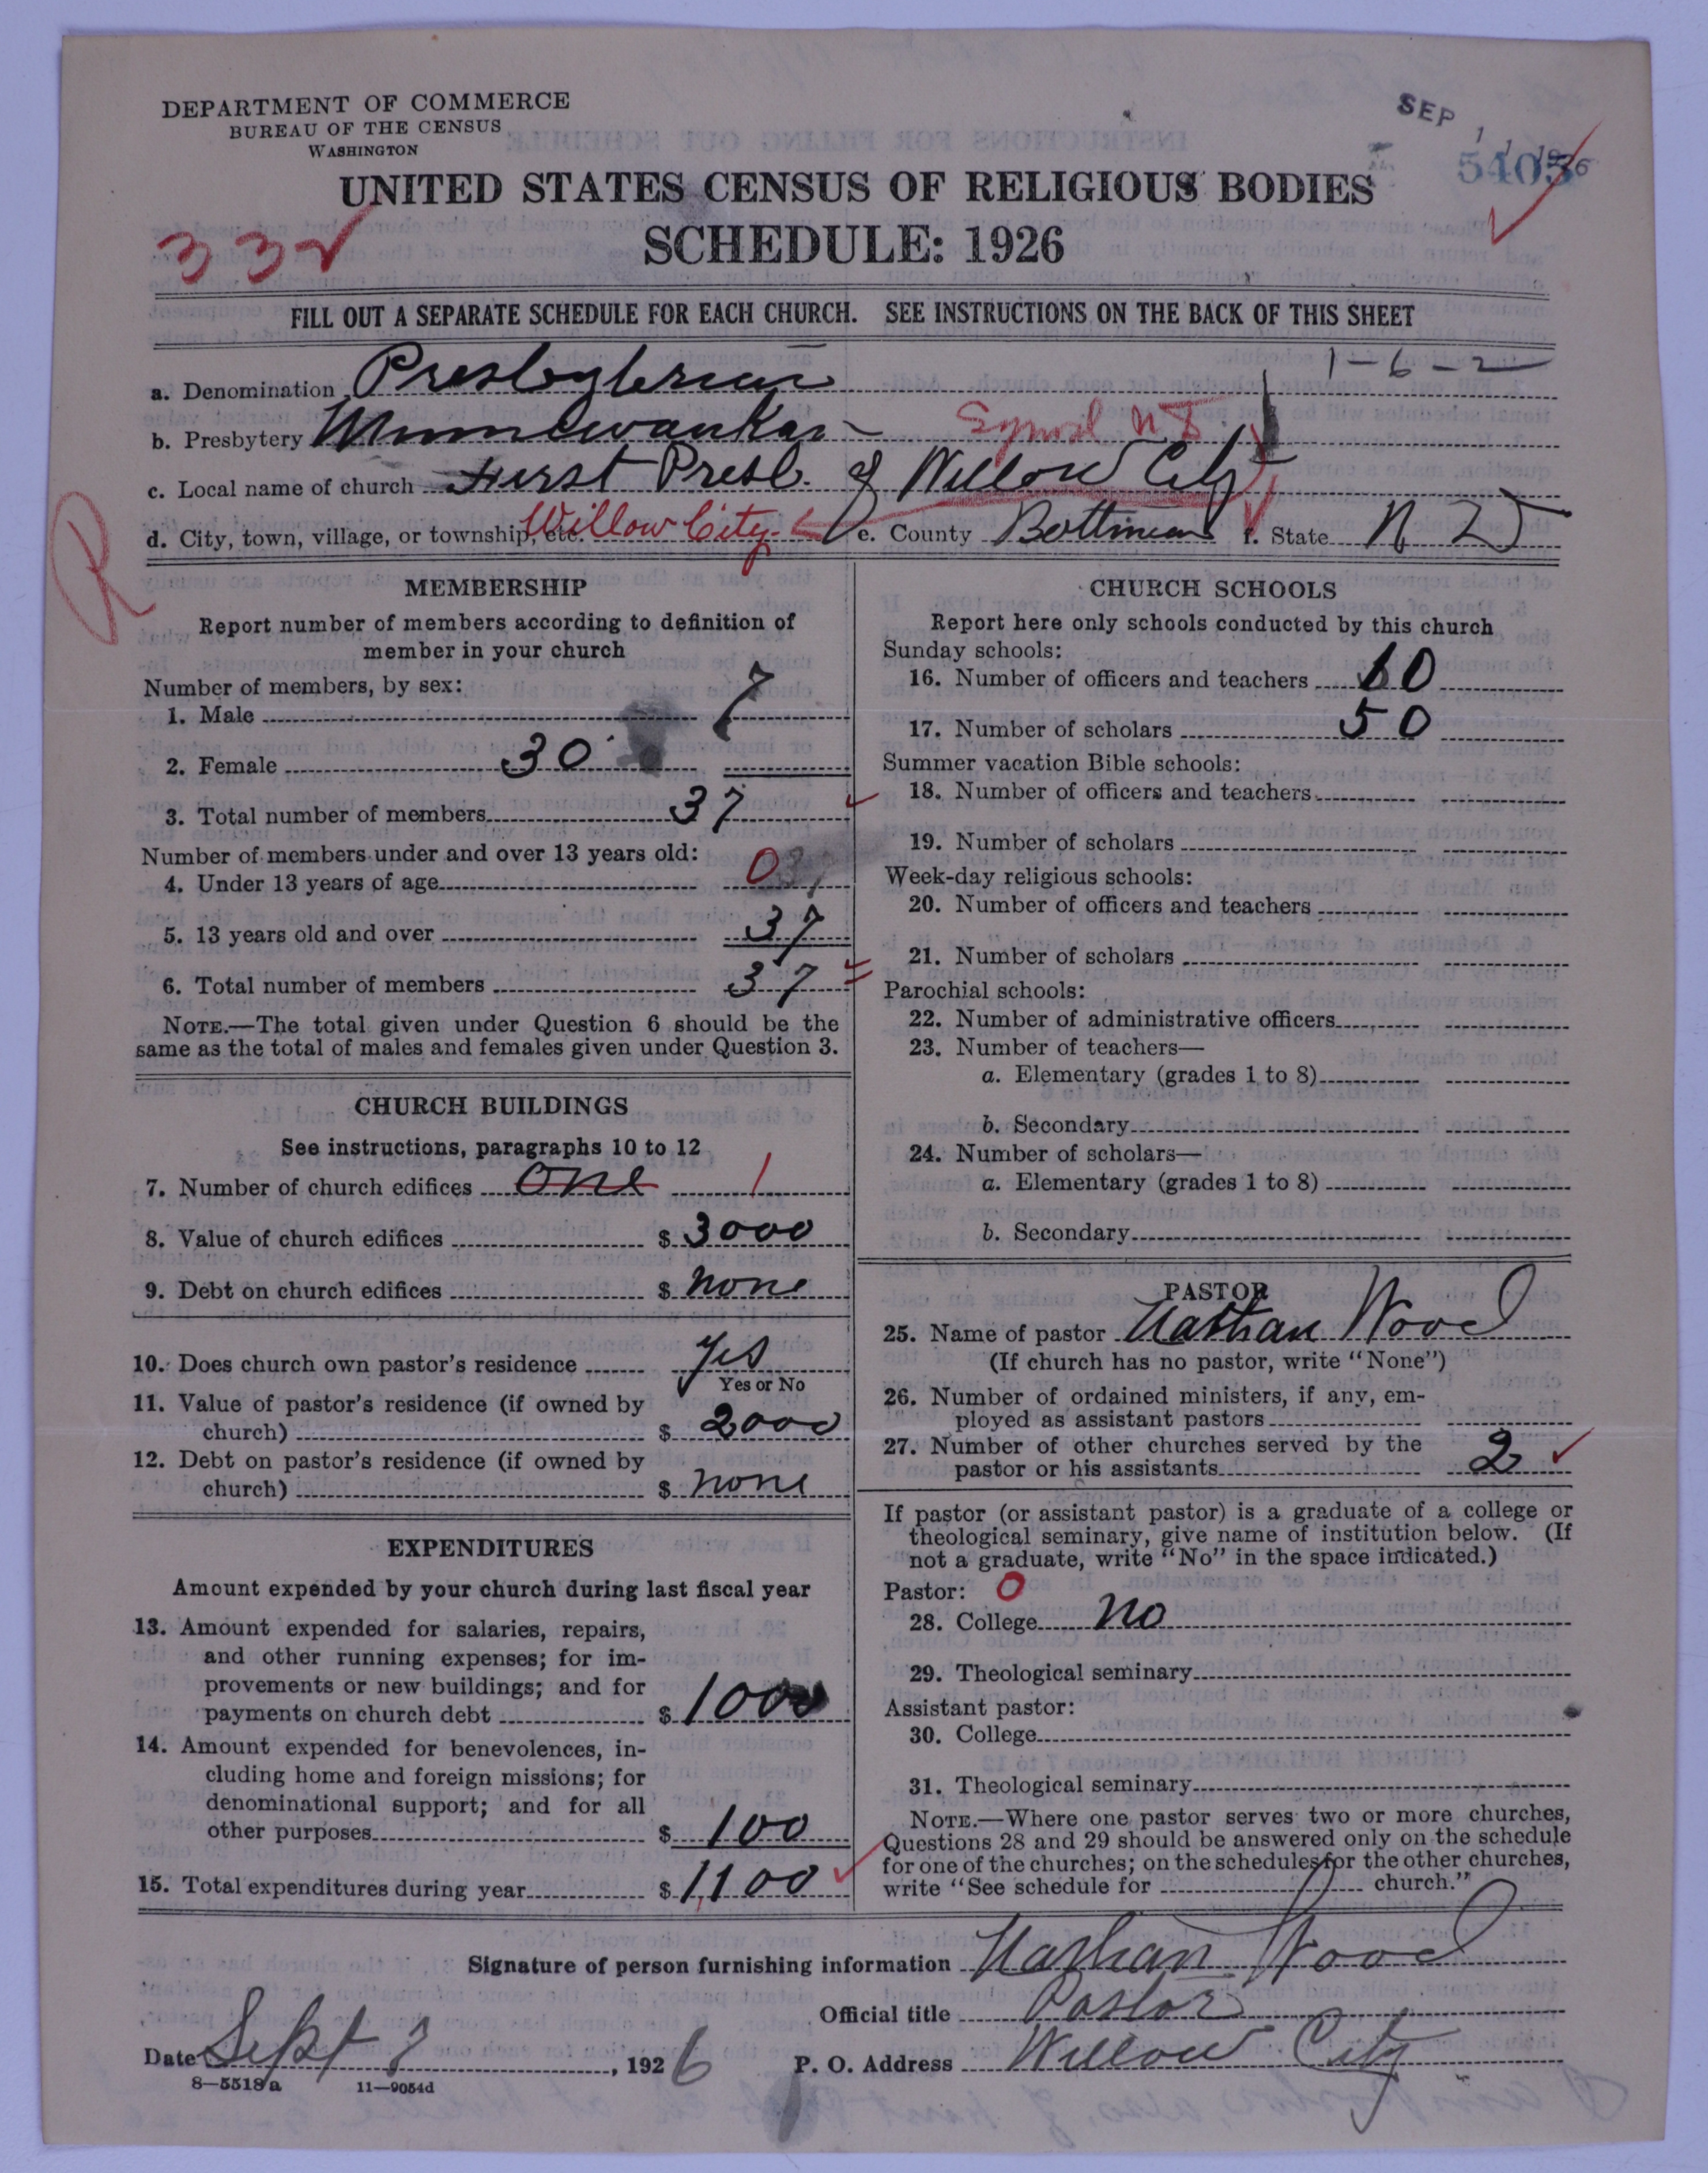 DEPARTMENT OF COMMERCE
BUREAU OF THE CENSUS
WASHINGTON
SEP 11 1926
5403
UNITED STATES CENSUS OF RELIGIOUS BODIES
SCHEDULE: 1926
332
FILL OUT A SEPARATE SCHEDULE FOR EACH CHURCH. SEE INSTRUCTIONS ON THE BACK OF THIS SHEET
1-6-2
a. Denomination Presbyterian
b. Presbytery Minnewaukan Synod N D
c. Local name of church First Presb. of Willow City
d. City, town, village, or township, etc. Willow City e. County Bottineau f. State N D
R
MEMBERSHIP
Report number of members according to definition of
member in your church
Number of members, by sex:
1. Male 7
2. Female 30
3. Total number of members 37
Number of members under and over 13 years old:
4. Under 13 years of age 0
5. 13 years old and over 37
6. Total number of members 37
NOTE.—The total given under Question 6 should be the
same as the total of males and females given under Question 3.
CHURCH BUILDINGS
See instructions, paragraphs 10 to 12
7. Number of church edifices One 1
8. Value of church edifices $ 3000
9. Debt on church edifices $ none
10. Does church own pastor's residence Yes
Yes or No
11. Value of pastor's residence (if owned by
church) $ 2000
12. Debt on pastor's residence (if owned by
church) $ none
EXPENDITURES
Amount expended by your church during last fiscal year
13. Amount expended for salaries, repairs,
and other running expenses; for im-
provements or new buildings; and for
payments on church debt $ 1000
14. Amount expended for benevolences, in-
cluding home and foreign missions; for
denominational support; and for all
other purposes $ 100
15. Total expenditures during year $ 1,100
CHURCH SCHOOLS
Report here only schools conducted by this church
Sunday schools:
16. Number of officers and teachers 10
17. Number of scholars 50
Summer vacation Bible schools:
18. Number of officers and teachers
19. Number of scholars
Week-day religious schools:
20. Number of officers and teachers
21. Number of scholars
Parochial schools:
22. Number of administrative officers
23. Number of teachers—
a. Elementary (grades 1 to 8)
b. Secondary
24. Number of scholars—
a. Elementary (grades 1 to 8)
b. Secondary
PASTOR
25. Name of pastor Nathan Wood
(If church has no pastor, write "None")
26. Number of ordained ministers, if any, em-
ployed as assistant pastors
27. Number of other churches served by the
pastor or his assistants 2
If pastor (or assistant pastor) is a graduate of a college or
theological seminary, give name of institution below. (If
not a graduate, write "No" in the space indicated.)
Pastor: 0
28. College no
29. Theological seminary
Assistant pastor:
30. College
31. Theological seminary
NOTE.—Where one pastor serves two or more churches,
Questions 28 and 29 should be answered only on the schedule
for one of the churches; on the schedules for the other churches,
write "See schedule for church."
Signature of person furnishing information Nathan Wood
Official title Pastor
Date Sept 3, 1926 P. O. Address Willow City
8—5518 a 11—9054d